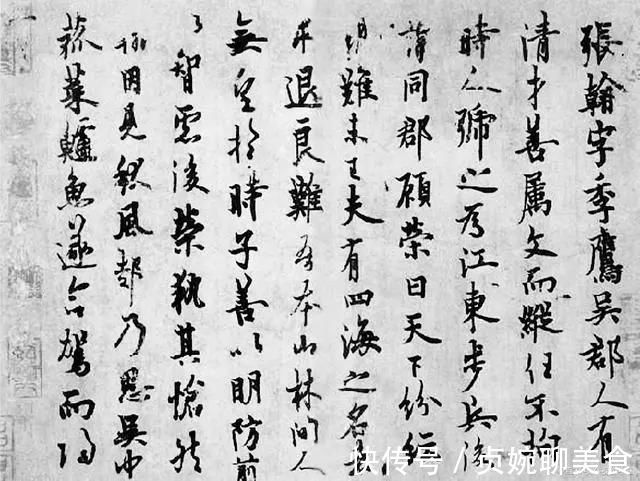 張翰字季鷹吳郡人有
清才善属文而縱任不拘
時人號之為江東步兵後
謂同郡顧榮曰天下紛紜
禍難未已夫有四海之名者
求退良難吾本山林間人
無望於時子善以明防前
以智慮後榮執其愴然
翰因見秋風起乃思吳中
菰菜鱸魚遂命駕而歸
快传号／贞婉聊美食